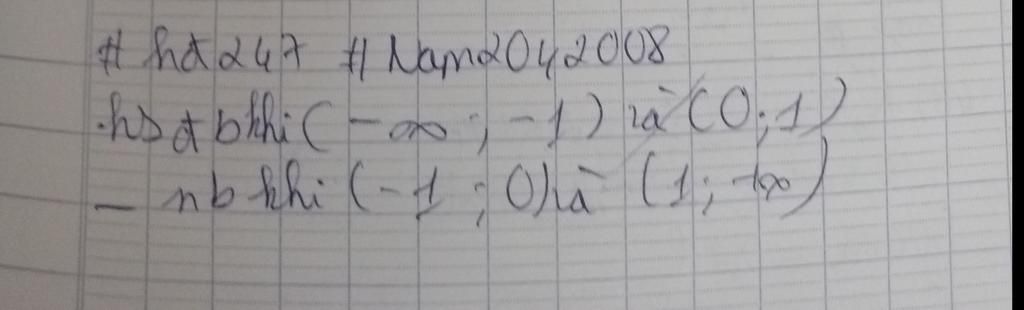 # hd247 #Nam2042008
.hs đb khi (-∞; -1) và (0; 1)
_ nb khi (-1; 0) và (1; +∞)